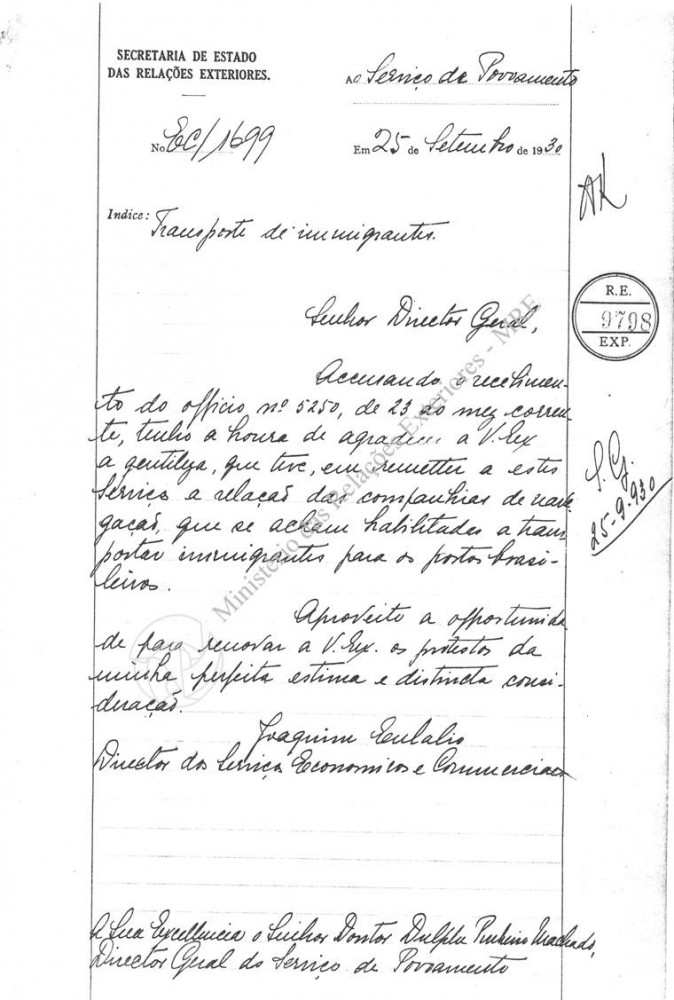 SECRETARIA DE ESTADO
DAS RELAÇÕES EXTERIORES.
Ao Serviço de Povoamento
No EC/1699
Em 25 de Setembro de 1930
AK
Indice: Transporte de immigrantes.
R.E.
9798
EXP.
Senhor Director Geral,
Accusando o recebimen-
to do officio nº 5250, de 23 do mez corren-
te, tenho a honra de agradecer a V. Ex
a gentileza, que teve, em remetter a este
Serviço a relação das companhias de nave
gação, que se acham habilitadas a trans
portar immigrantes para os portos brasi-
leiros.
S. G.
25-9-930
Aproveito a opportunida
de para renovar a V. Ex. os protestos da
minha perfeita estima e distincta consi-
deração.
Joaquim Eulalio
Director dos Serviços Economicos e Commerciaes
A Sua Excellencia o Senhor Doutor Dulphe Pinheiro Machado,
Director Geral do Serviço de Povoamento
Ministério das Relações Exteriores - MRE